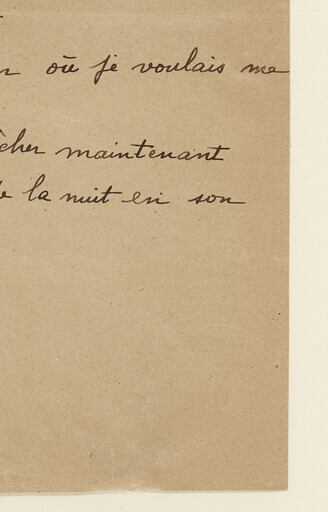 où je voulais me
cher maintenant
la nuit en son